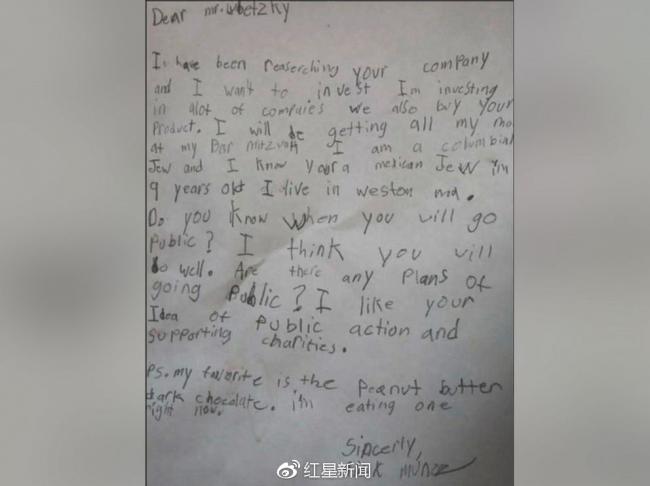 Dear mr. lubetzky
I have been reaserching your company
and I want to invest Im investing
in alot of compaies we also buy your
product. I will be getting all my mo
at my Bar mitzvah I am a columbia
Jew and I know your a mexican Jew im
9 years old I live in weston ma.
Do you know when you will go
public? I think you will
do well. Are there any plans of
going public? I like your
Idea of public action and
supporting charities.
PS. my favorite is the peanut butter
dark chocolate. i'm eating one
right now.
Sincerly,
munoz
红星新闻